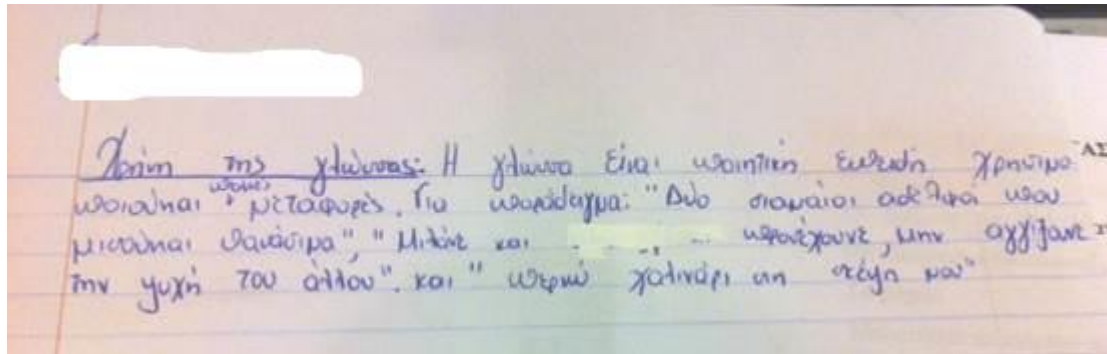 Χρήση της γλώσσας: Η γλώσσα είναι ποιητική επειδή χρησιμο
ποιούνται πολλές μεταφορές. Για παράδειγμα: "Δύο σιαμαίοι αδελφοί που
μισούνται θανάσιμα", "Μιλάνε και προσέχουνε, μην αγγίξανε
την ψυχή του άλλου". και "περνώ χαλινάρι στη σκέψη μου"